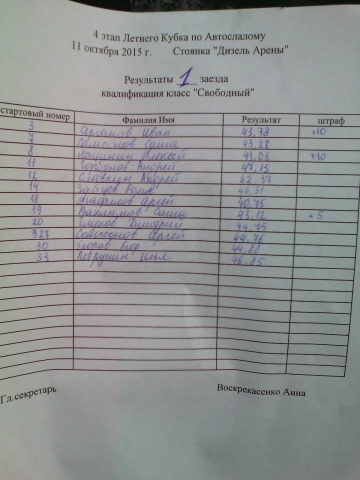 4 этап Летнего Кубка по Автослалому
11 октября 2015 г. Стоянка "Дизель Арены"
Результаты 1 заезда
квалификация класс "Свободный"
стартовый номер Фамилия Имя Результат штраф
3 Иван 43,78 +10
7 Самсонов Саша 43.28
8 Алексей 41.06 +10
11 Горбунов Андрей 47.15
12 Андрей 42.37
14 Зайцев 46.31
18 Агафилов Сергей 40.75
19 Саша 43.12 +5
20 Дмитрий 44.75
927 Самсонов Сергей 44.76
30 Егоров Егор 44.88
33 Петрунин Илья 46.85
Гл.секретарь Воскрекасенко Анна